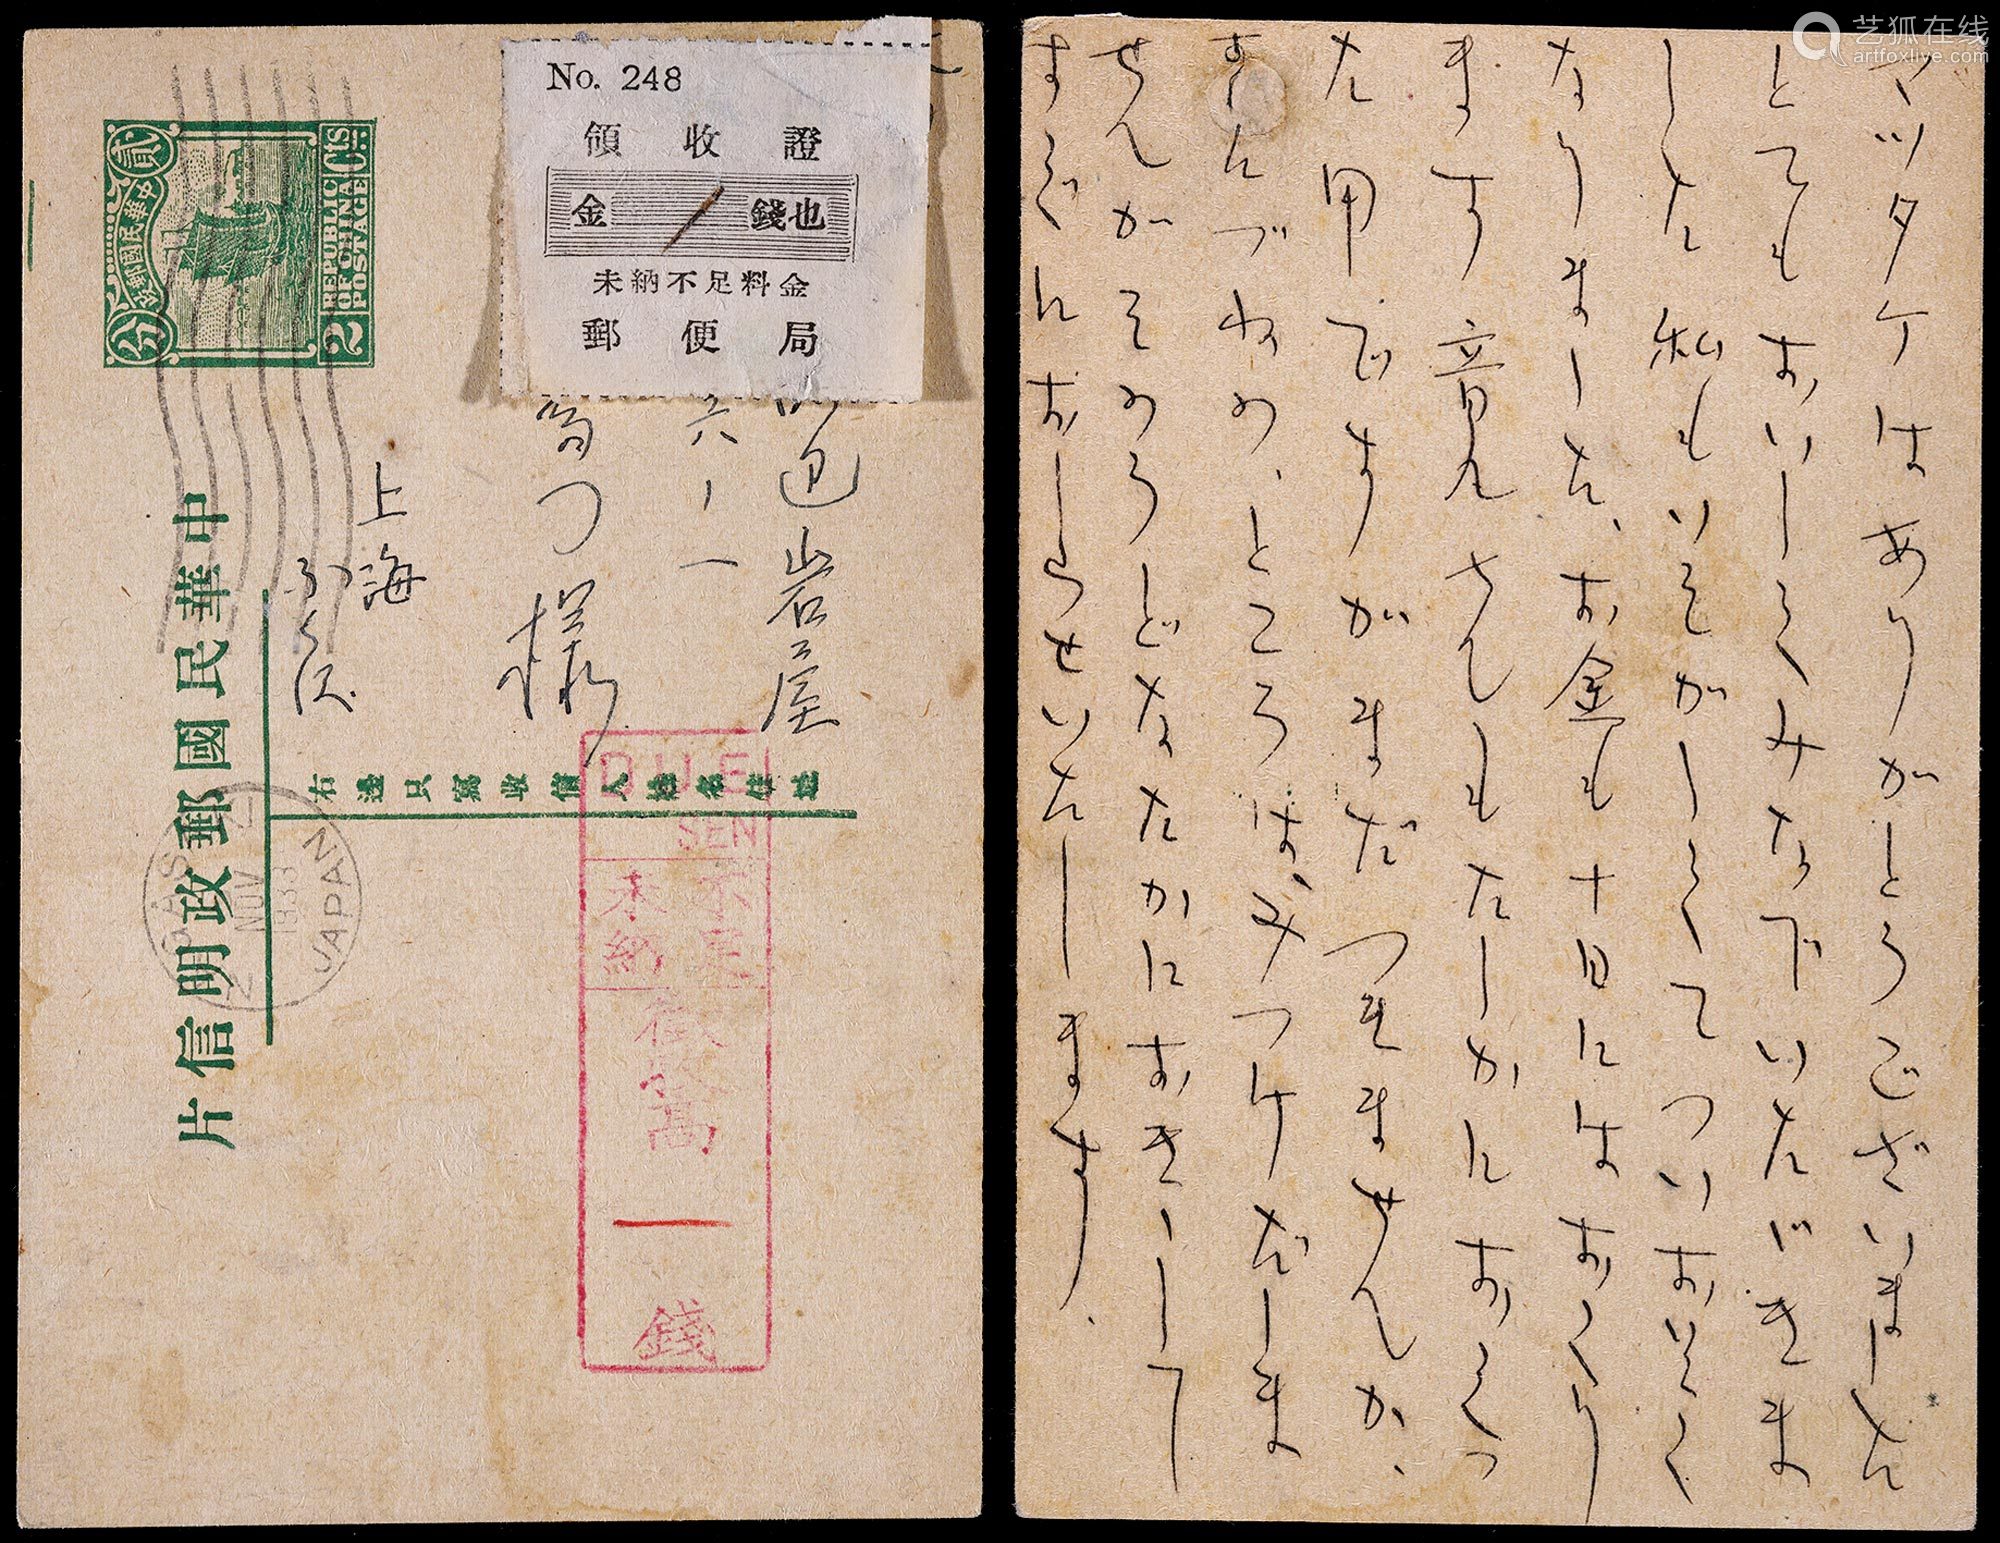 No. 248
領收證
金 錢也
未納不足料金
郵便局
貳
分
中華民國郵政
2 Cts
REPUBLIC
OF CHINA
POSTAGE
中華民國郵政明信片
右邊只寫收信人姓名住址
岩屋
六ノ一
様
上海
NOV
1933
JAPAN
DUE
SEN
不足
未納
一錢
マツタケはありがとうございました
とてもおいしくみなでいたゞきま
した 私もいそがしくてついおそく
なりました、お金も十日にはおくり
ます 音見さんもたしかにおくつ
た用ですがまだつきませんか、
すにづねの、ところは、みつけだしま
せんがそのうどなたかにおきゝして
すぐにおしらせいたします.
艺狐在线
artfoxlive.com